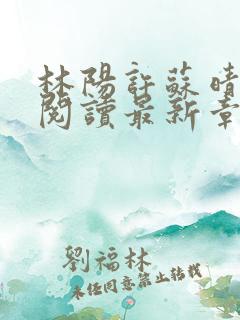 林陽許蘇晴
閱讀最新章
劉福林
未經同意禁止轉載